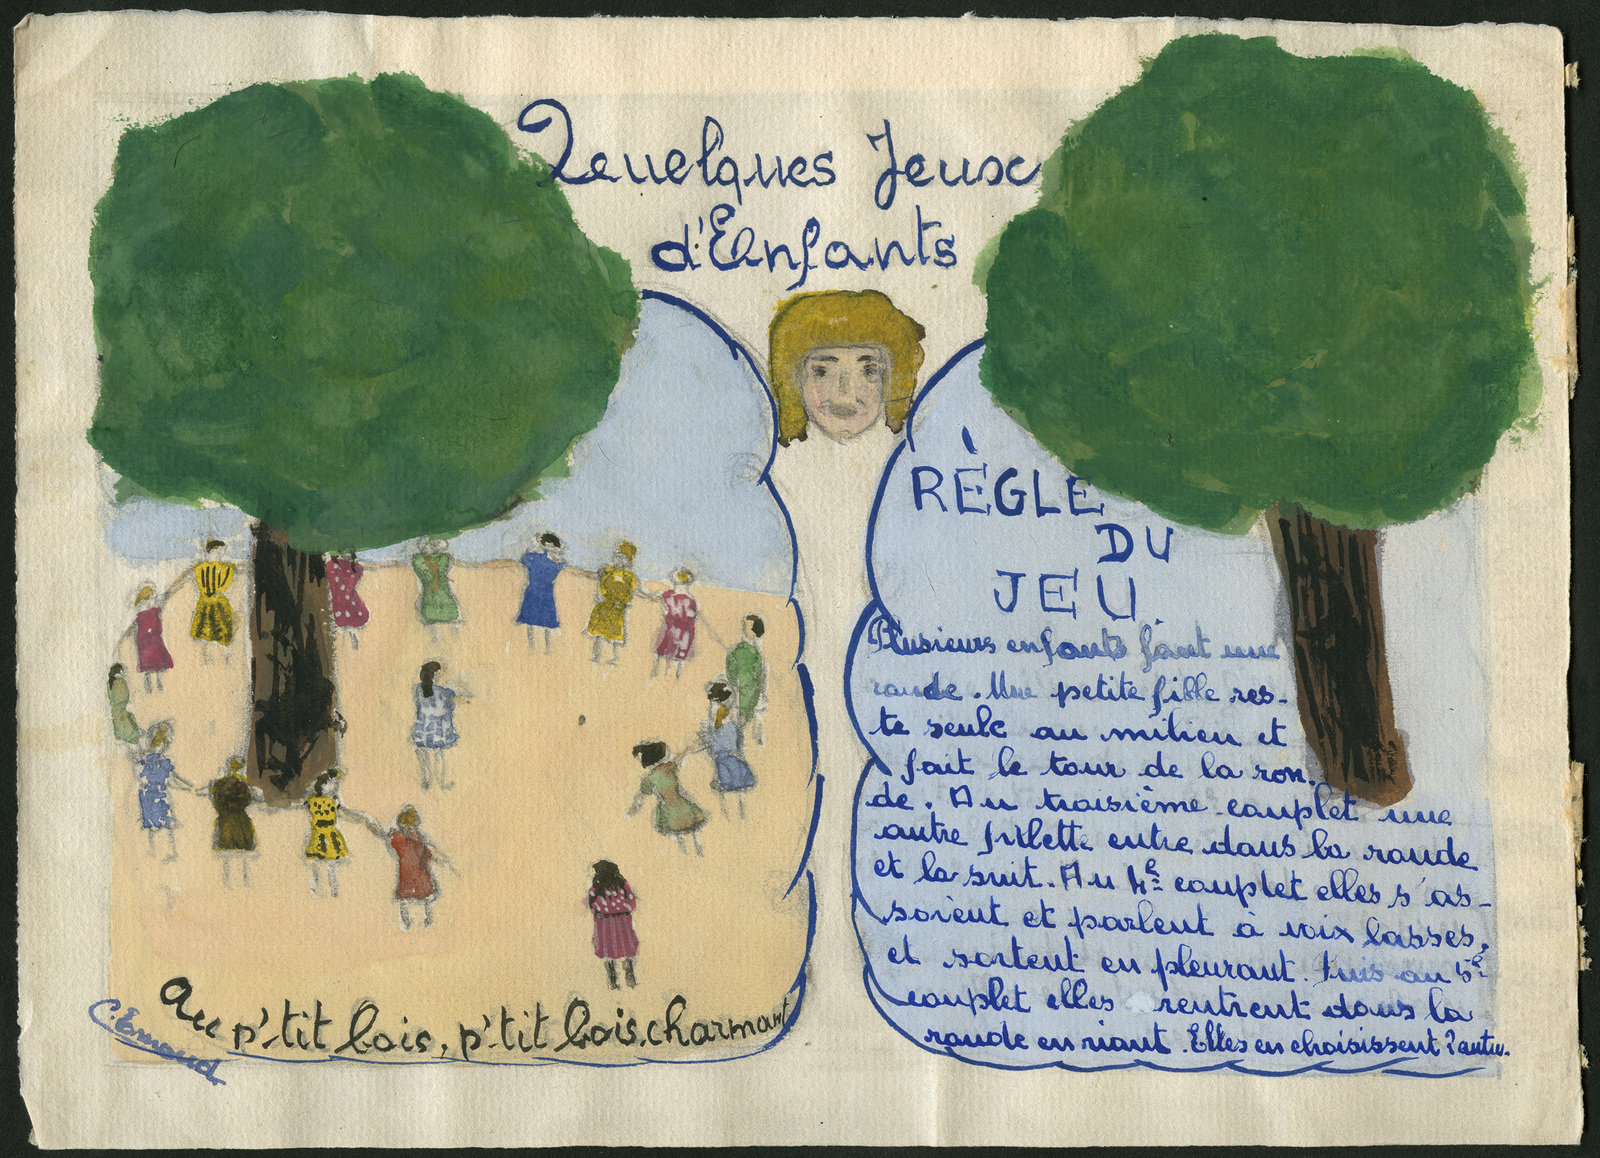 Quelques Jeux
d'Enfants
RÈGLE
DU
JEU.
Plusieurs enfants font une
ronde. Une petite fille res-
te seule au milieu et
fait le tour de la ron.
de. Au troisième couplet une
autre fillette entre dans la ronde
et la suit. Au 4e couplet elles s'as-
soient et parlent à voix basses,
et sortent en pleurant. Puis au 5e
couplet elles rentrent dans la
ronde en riant. Elles en choisissent 2 autre.
Au p'-tit bois, p'-tit bois.charmant
C. Emoud